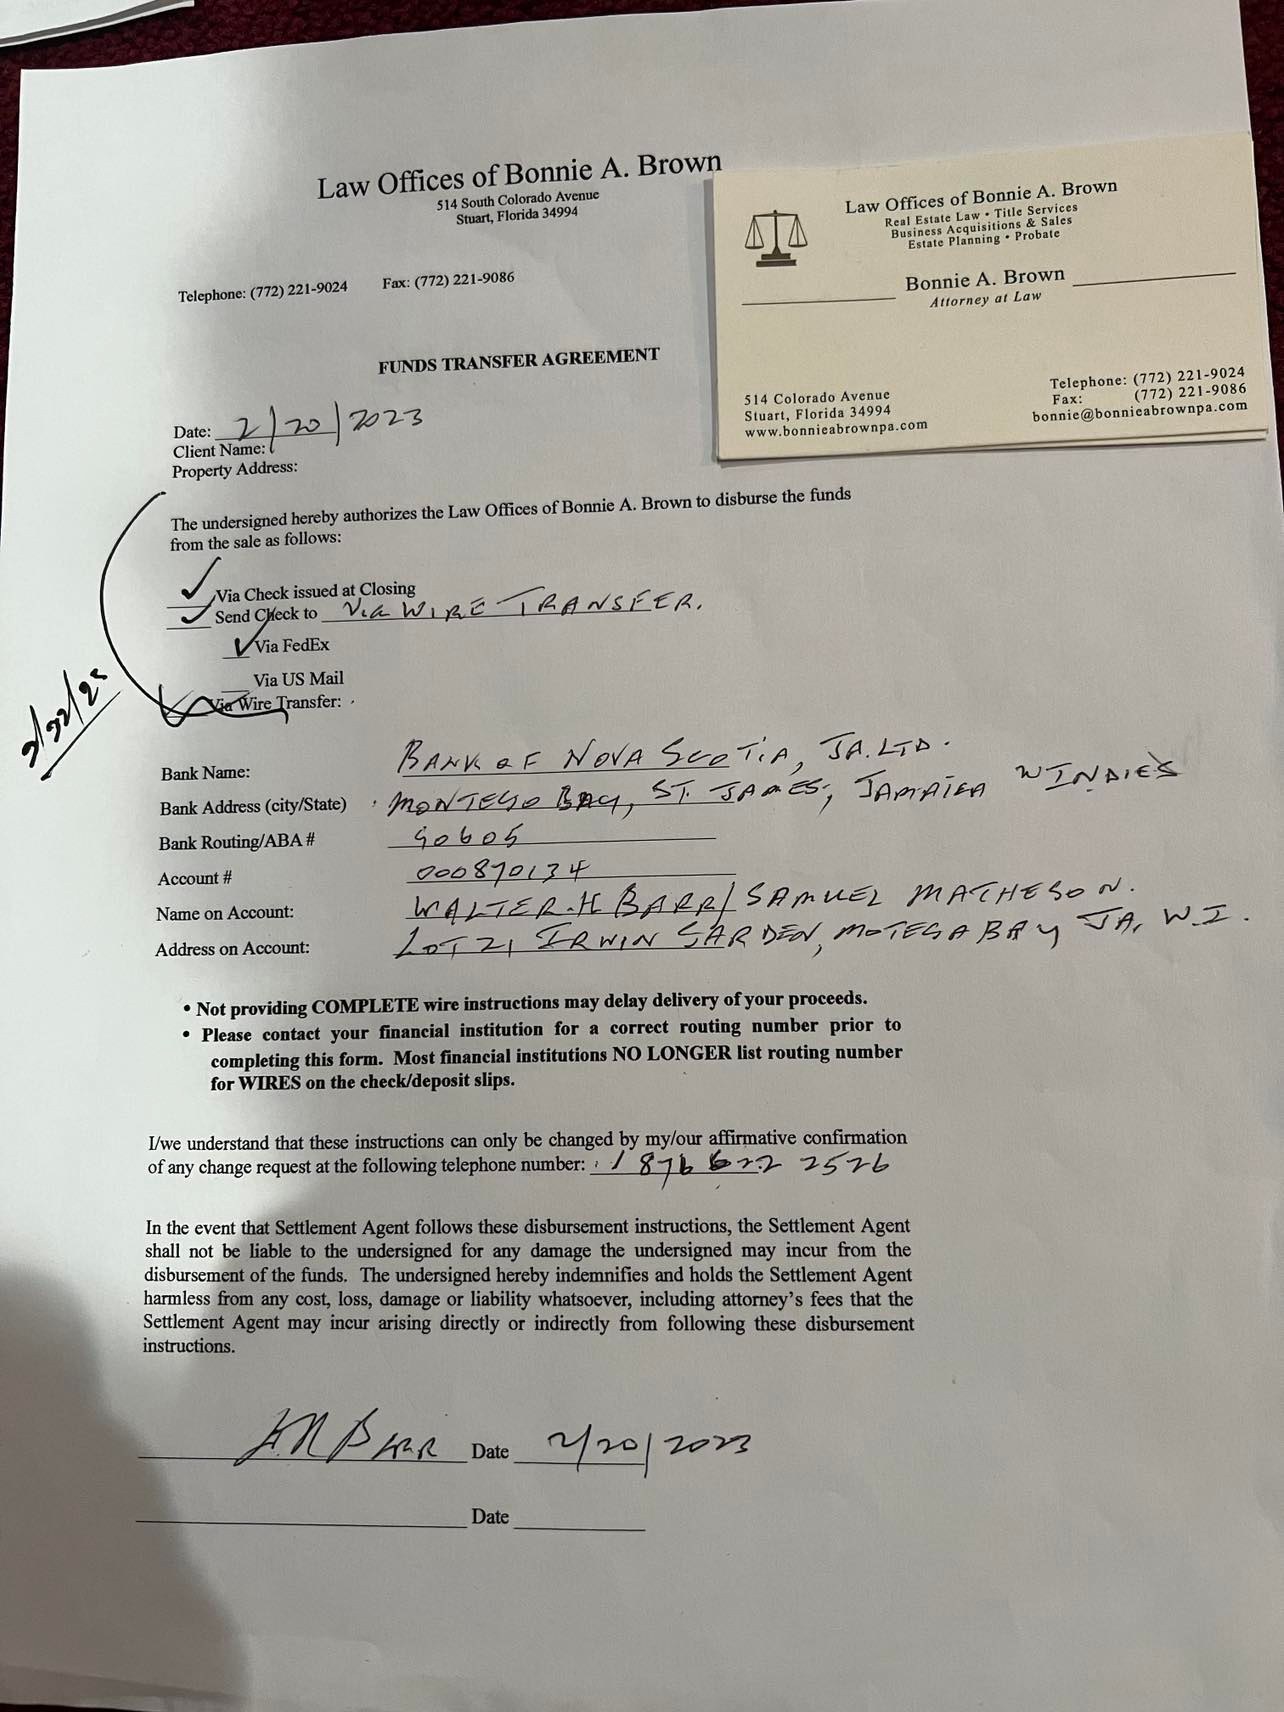 Law Offices of Bonnie A. Brown
514 South Colorado Avenue
Stuart, Florida 34994
Telephone: (772) 221-9024 Fax: (772) 221-9086
FUNDS TRANSFER AGREEMENT
Law Offices of Bonnie A. Brown
Real Estate Law • Title Services
Business Acquisitions & Sales
Estate Planning • Probate
Bonnie A. Brown
Attorney at Law
514 Colorado Avenue
Stuart, Florida 34994
www.bonnieabrownpa.com
Telephone: (772) 221-9024
Fax: (772) 221-9086
bonnie@bonnieabrownpa.com
Date: 2/20/2023
Client Name:
Property Address:
The undersigned hereby authorizes the Law Offices of Bonnie A. Brown to disburse the funds
from the sale as follows:
Via Check issued at Closing
Send Check to Via WIRE TRANSFER.
Via FedEx
Via US Mail
Via Wire Transfer:
Bank Name: BANK OF NOVA SCOTIA, JA. LTD.
Bank Address (city/State) MONTEGO BAY, ST. JAMES, JAMAICA W INDIES
Bank Routing/ABA # 50605
Account # 000870134
Name on Account: WALTER. H BARR/ SAMUEL MATHESON.
Address on Account: LOT 21 IRWIN GARDEN, MOTEGA BAY JA, W.I.
• Not providing COMPLETE wire instructions may delay delivery of your proceeds.
• Please contact your financial institution for a correct routing number prior to
completing this form. Most financial institutions NO LONGER list routing number
for WIRES on the check/deposit slips.
I/we understand that these instructions can only be changed by my/our affirmative confirmation
of any change request at the following telephone number: 1 876 622 2526
In the event that Settlement Agent follows these disbursement instructions, the Settlement Agent
shall not be liable to the undersigned for any damage the undersigned may incur from the
disbursement of the funds. The undersigned hereby indemnifies and holds the Settlement Agent
harmless from any cost, loss, damage or liability whatsoever, including attorney's fees that the
Settlement Agent may incur arising directly or indirectly from following these disbursement
instructions.
Barr Date 2/20/2023
Date